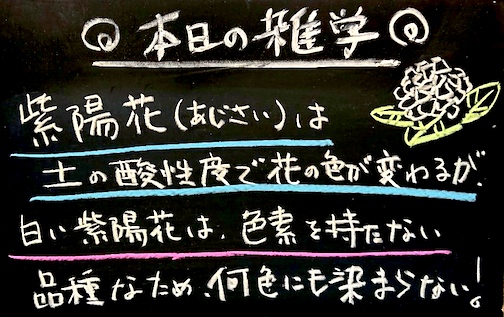 本日の雑学
紫陽花(あじさい)は
土の酸性度で花の色が変わるが、
白い紫陽花は、色素を持たない
品種なため、何色にも染まらない!